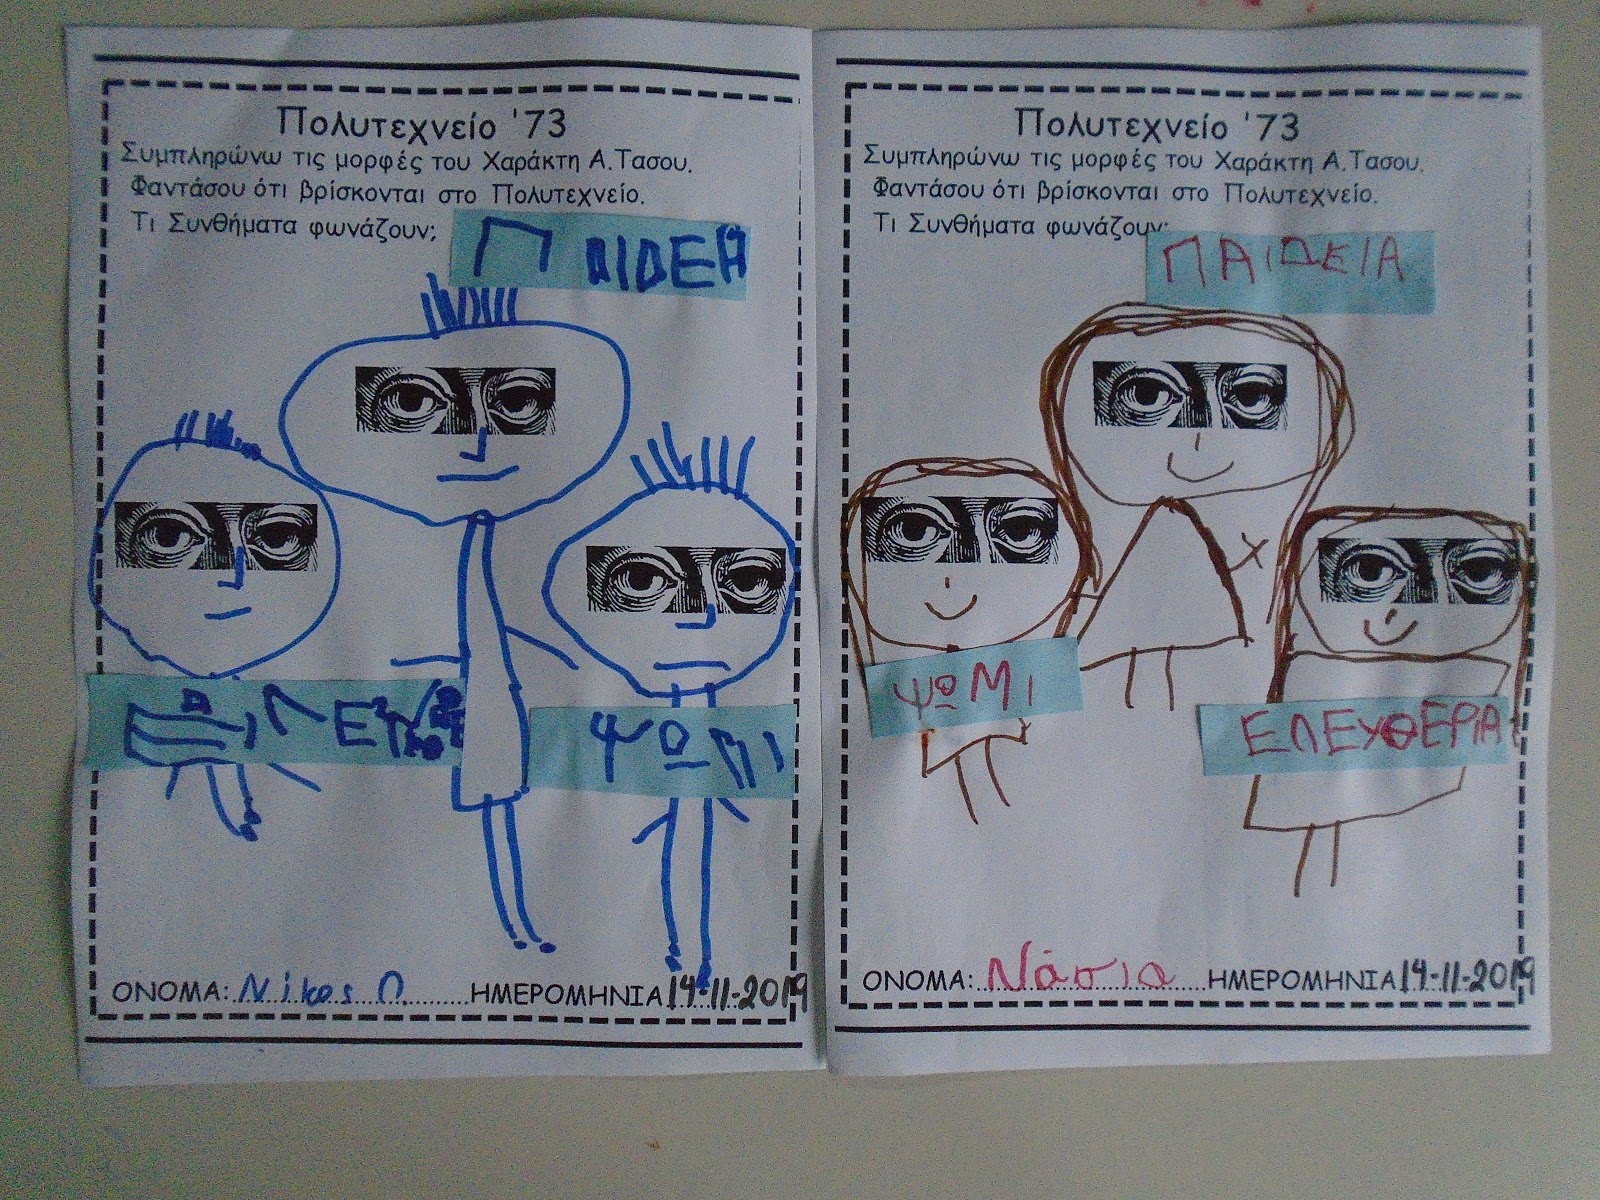 Πολυτεχνείο '73
Συμπληρώνω τις μορφές του Χαράκτη Α.Τασου.
Φαντάσου ότι βρίσκονται στο Πολυτεχνείο.
Τι Συνθήματα φωνάζουν;
ΠΑΙΔΕΙΑ
ΨΩΜΙ
ΟΝΟΜΑ: Νίκος Π. ΗΜΕΡΟΜΗΝΙΑ 14-11-2019
Πολυτεχνείο '73
Συμπληρώνω τις μορφές του Χαράκτη Α.Τασου.
Φαντάσου ότι βρίσκονται στο Πολυτεχνείο.
Τι Συνθήματα φωνάζουν;
ΠΑΙΔΕΙΑ
ΨΩΜΙ
ΕΛΕΥΘΕΡΙΑ
ΟΝΟΜΑ: Νάσια ΗΜΕΡΟΜΗΝΙΑ 14-11-2019